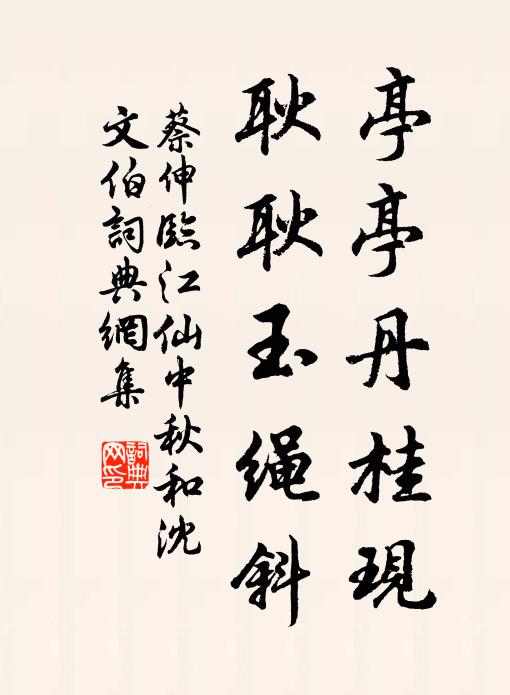 亭亭丹桂現
耿耿玉繩斜
蔡伸臨江仙中秋和沈
文伯詞典網集
詞典
网印